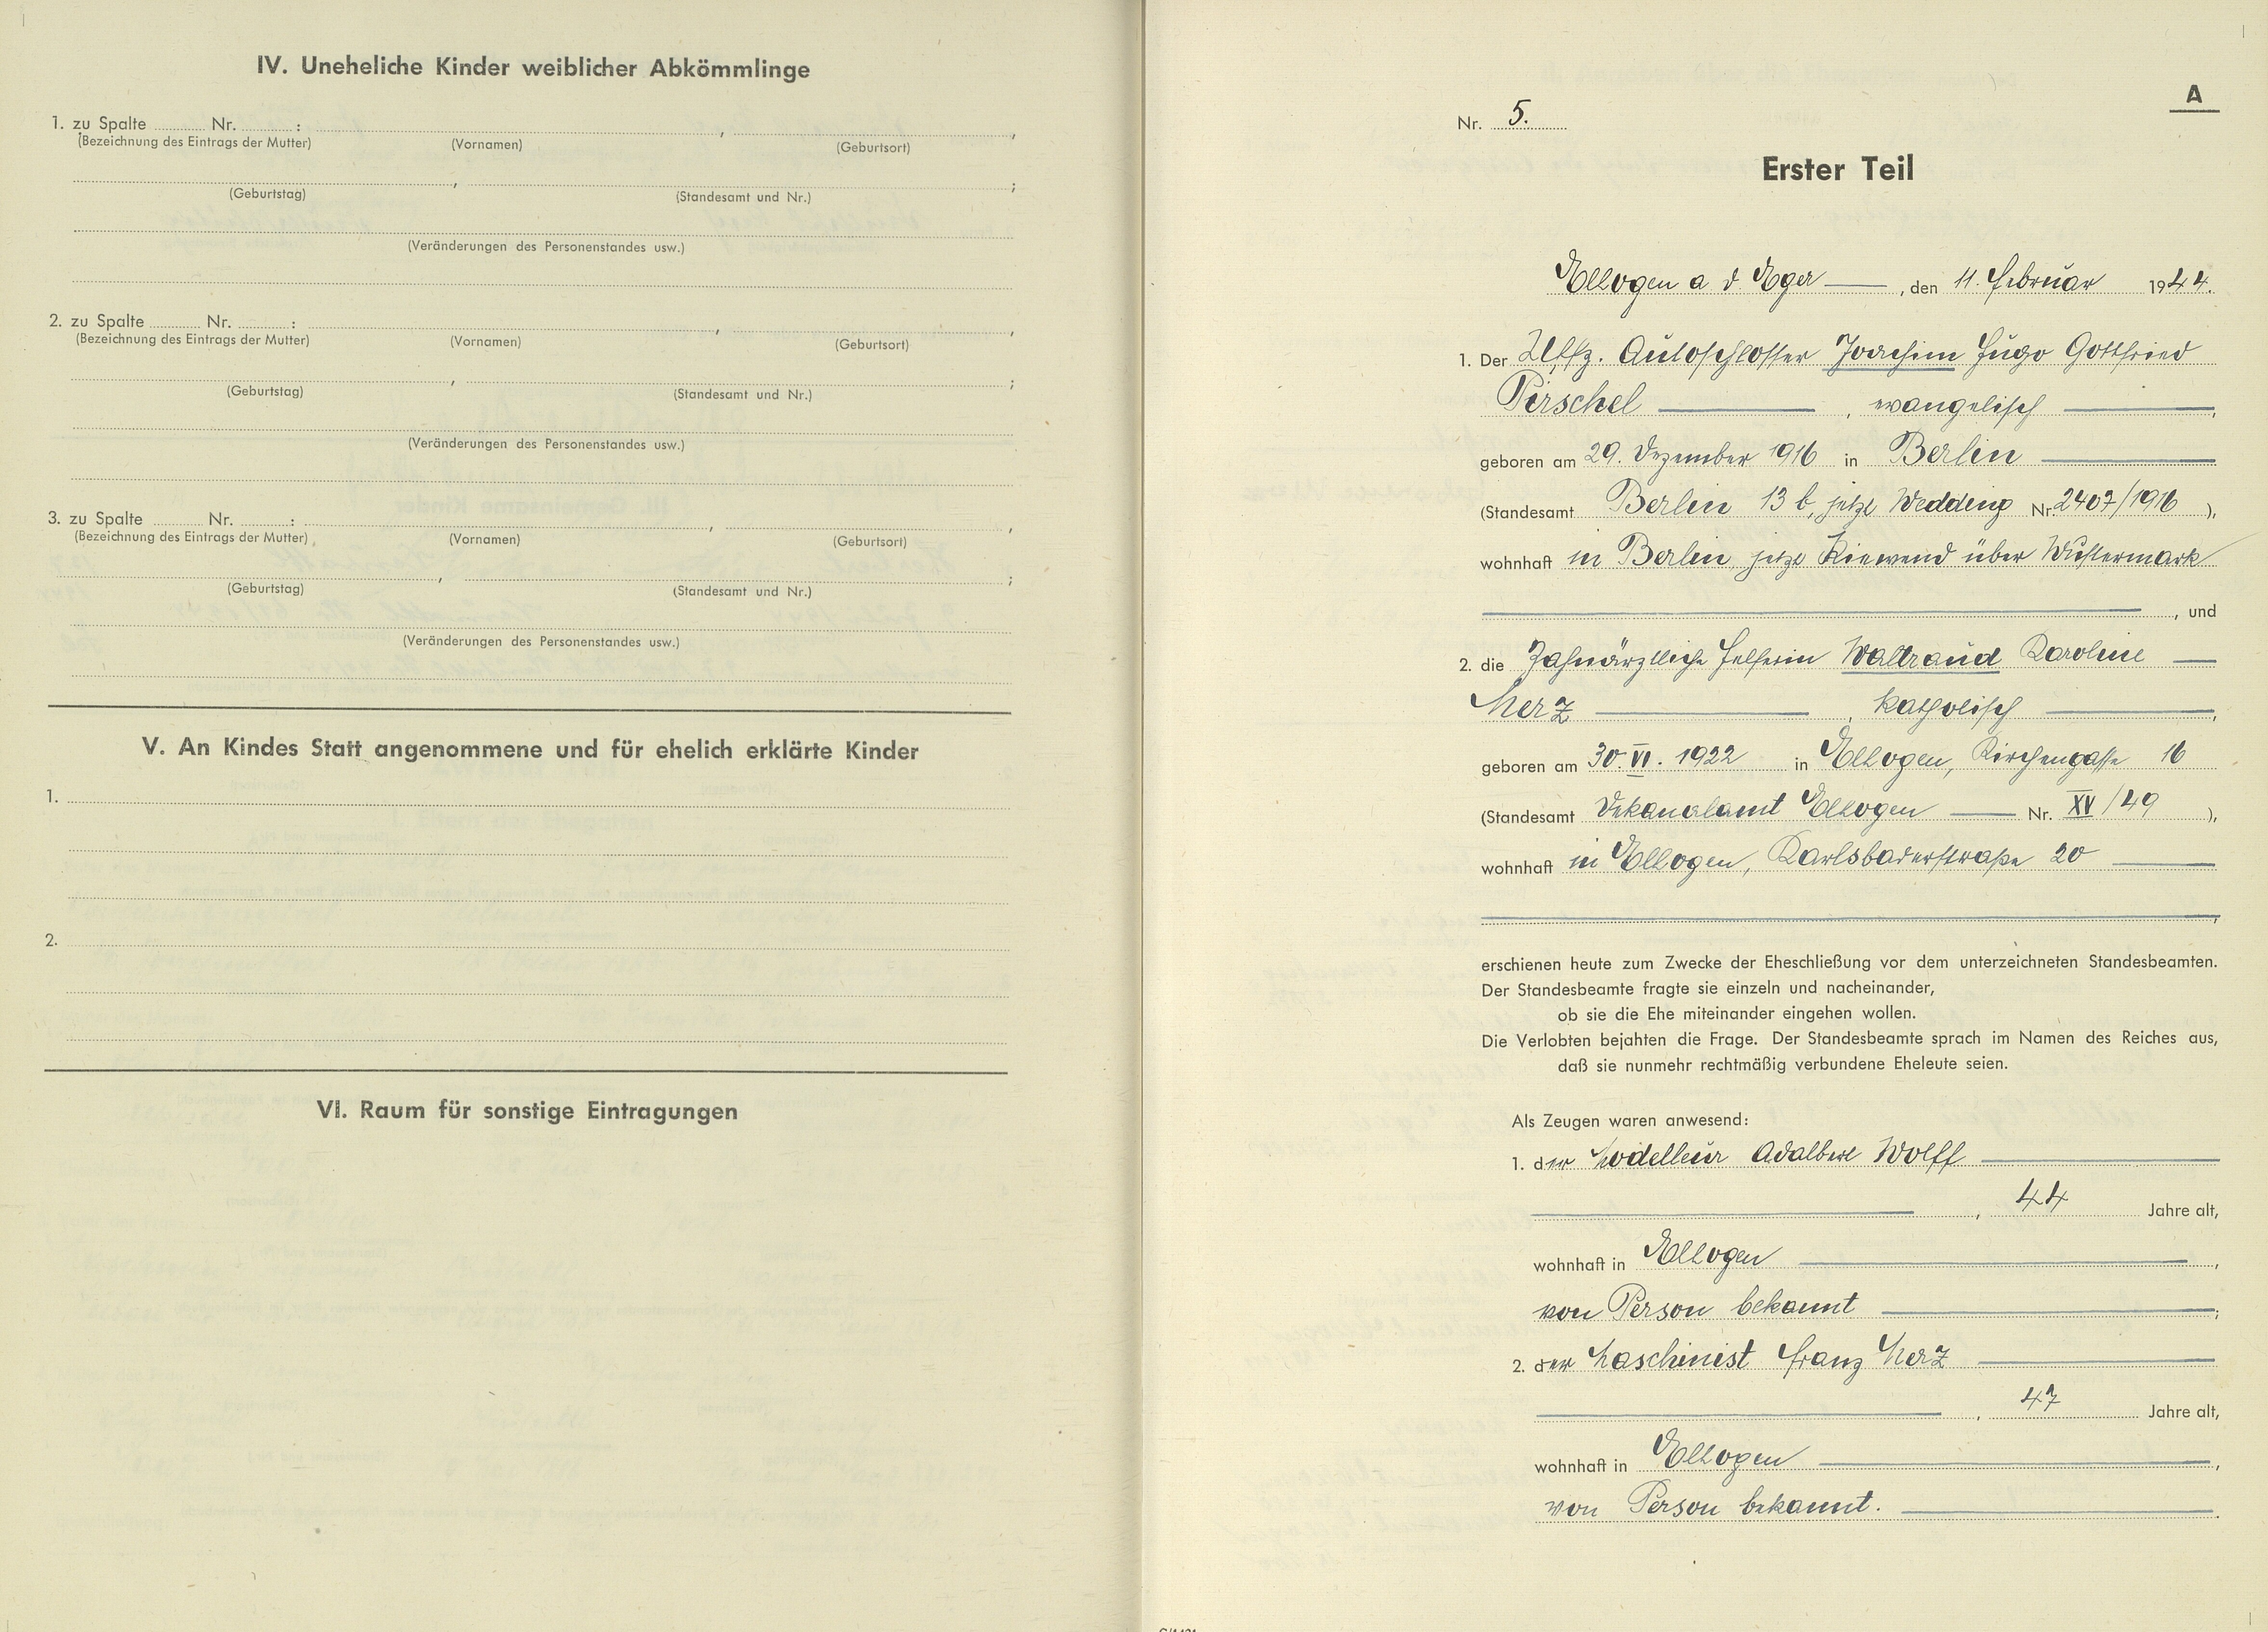 IV. Uneheliche Kinder weiblicher Abkömmlinge
1. zu Spalte ........ Nr. ........ :
(Bezeichnung des Eintrags der Mutter) (Vornamen) (Geburtsort)
(Geburtstag) (Standesamt und Nr.)
(Veränderungen des Personenstandes usw.)
2. zu Spalte ........ Nr. ........ :
(Bezeichnung des Eintrags der Mutter) (Vornamen) (Geburtsort)
(Geburtstag) (Standesamt und Nr.)
(Veränderungen des Personenstandes usw.)
3. zu Spalte ........ Nr. ........ :
(Bezeichnung des Eintrags der Mutter) (Vornamen) (Geburtsort)
(Geburtstag) (Standesamt und Nr.)
(Veränderungen des Personenstandes usw.)
V. An Kindes Statt angenommene und für ehelich erklärte Kinder
1.
2.
VI. Raum für sonstige Eintragungen
A
Nr. 5.
Erster Teil
Ellbogen a d. Eger, den 11. Februar 1944.
1. Der Uffz. Autoschlosser Joachim Hugo Gottfried
Pirschel, evangelisch,
geboren am 29. Dezember 1916 in Berlin
(Standesamt Berlin 13 b, jetzt Wedding Nr. 2407/1916),
wohnhaft in Berlin, jetzt Riewend über Wustermark
, und
2. die Zahnärztliche Helferin Waltraud Karoline
Merz, katholisch,
geboren am 30. VI. 1922 in Ellbogen, Kirchengasse 16
(Standesamt Dekanalamt Ellbogen Nr. XV/49),
wohnhaft in Ellbogen, Karlsbaderstraße 20
,
erschienen heute zum Zwecke der Eheschließung vor dem unterzeichneten Standesbeamten.
Der Standesbeamte fragte sie einzeln und nacheinander,
ob sie die Ehe miteinander eingehen wollen.
Die Verlobten bejahten die Frage. Der Standesbeamte sprach im Namen des Reiches aus,
daß sie nunmehr rechtmäßig verbundene Eheleute seien.
Als Zeugen waren anwesend:
1. der Modelleur Adalbert Wolff
, 44 Jahre alt,
wohnhaft in Ellbogen,
von Person bekannt;
2. der Maschinist Franz Merz
, 47 Jahre alt,
wohnhaft in Ellbogen,
von Person bekannt.